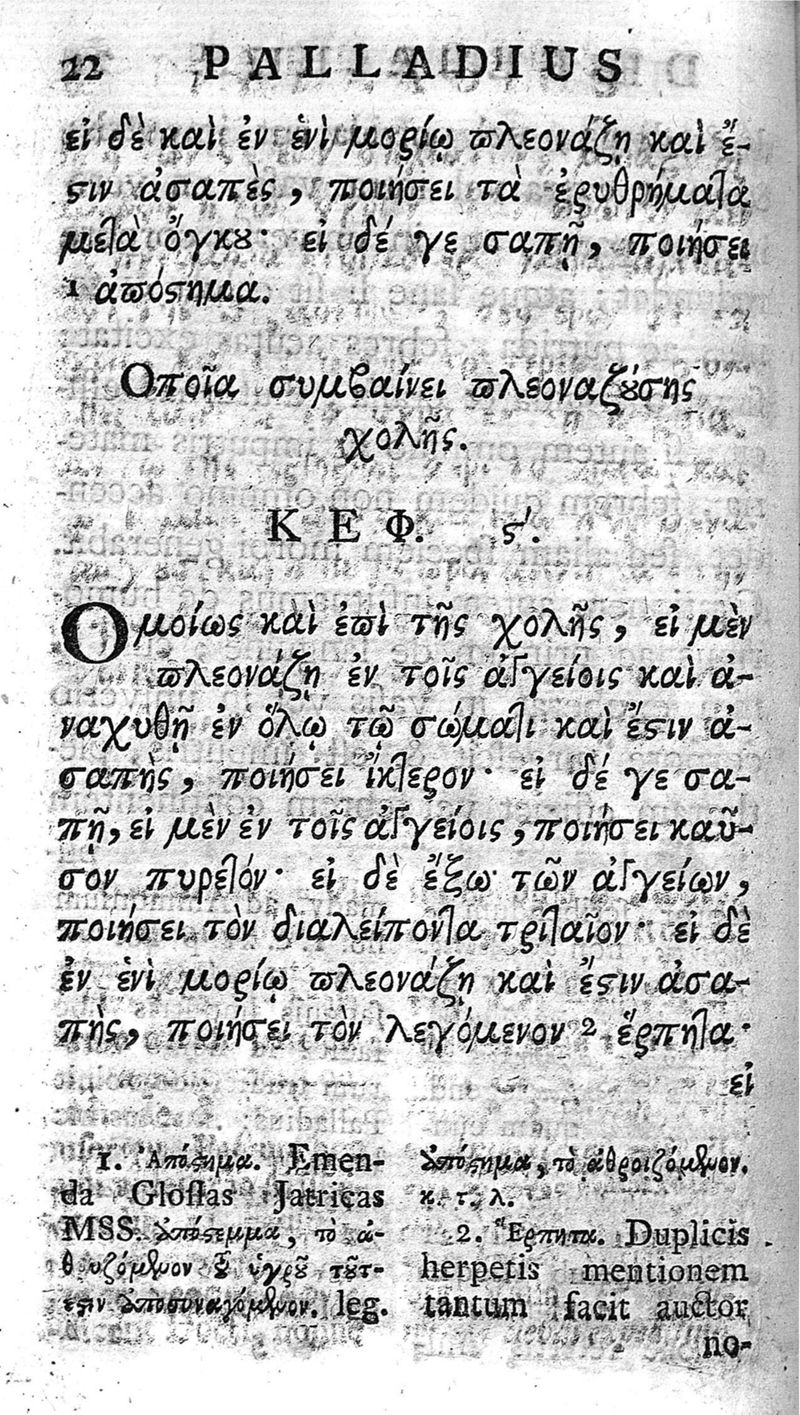 22 PALLADIUS
εἰ δὲ καὶ ἐν ἑνὶ μορίῳ πλεονάζῃ καὶ ἔ-
ϛιν ἀσαπὲς, ποιήσει τὰ ἐρυθρήματα
μετὰ ὄγκȣ· εἰ δέ γε σαπῇ, ποιήσει
1 ἀπόϛημα.
Οποῖα συμβαίνει πλεοναζȣ́σης
χολῆς.
ΚΕΦ. ϛ'.
Ομοίως καὶ ἐπὶ τῆς χολῆς, εἰ μὲν
πλεονάζῃ ἐν τοῖς ἀγγείοις καὶ ἀ-
ναχυθῇ ἐν ὅλῳ τῷ σώματι καὶ ἔϛιν ἀ-
σαπὴς, ποιήσει ἴκτερον· εἰ δέ γε σα-
πῇ, εἰ μὲν ἐν τοῖς ἀγγείοις, ποιήσει καῦ-
σον πυρετόν· εἰ δὲ ἔξω τῶν ἀγγείων,
ποιήσει τὸν διαλείποντα τριταῖον· εἰ δὲ
ἐν ἑνὶ μορίῳ πλεονάζῃ καὶ ἔϛιν ἀσα-
πὴς, ποιήσει τὸν λεγόμενον 2 ἕρπητα·
εἰ
1. Ἀπόϛημα. Emen-
da Glossas Jatricas
MSS. ἀπόϛεμμα, τὸ ἀ-
θυζόμενον ὑγρȣ͂ τȣ͂τ-
εϛιν ἀποσυναγόμενον. leg.
ἀπόϛημα, τὸ ἀθροιζόμενον.
κ. τ. λ.
2. Ἕρπητα. Duplicis
herpetis mentionem
tantum facit auctor
no-